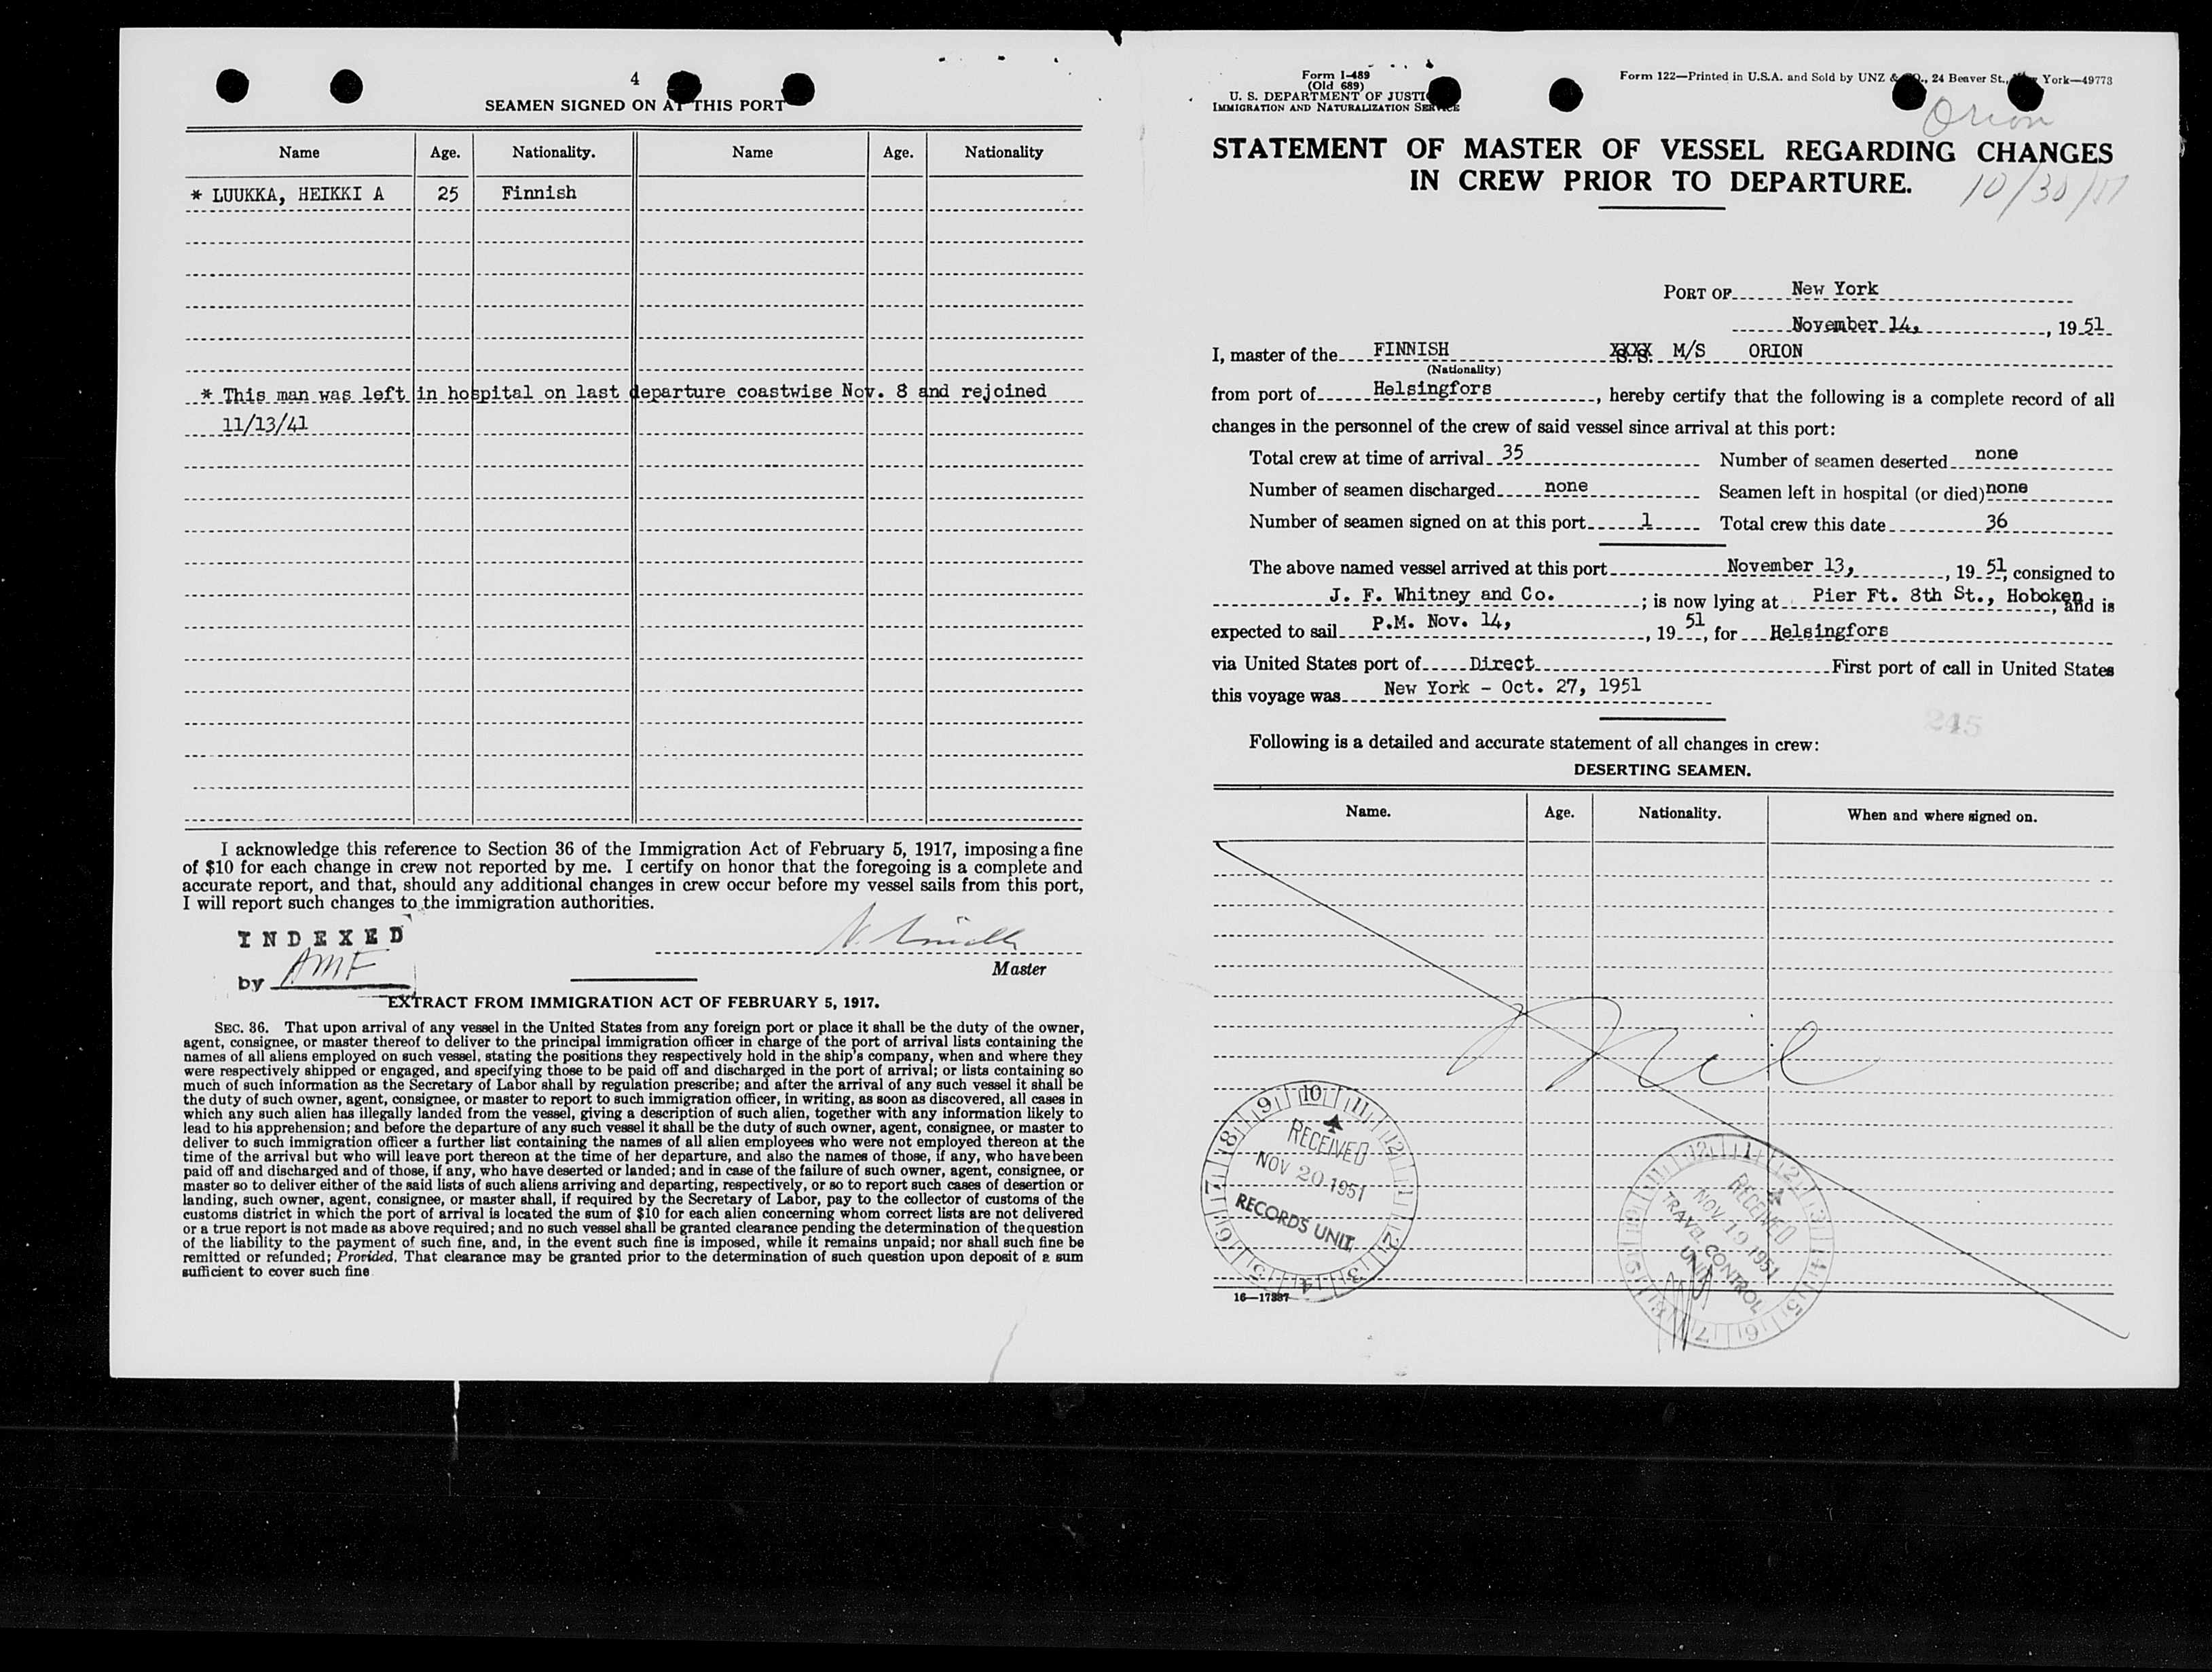 4
SEAMEN SIGNED ON AT THIS PORT
Name Age. Nationality. Name Age. Nationality
* LUUKKA, HEIKKI A 25 Finnish
* This man was left in hospital on last departure coastwise Nov. 8 and rejoined
11/13/41
I acknowledge this reference to Section 36 of the Immigration Act of February 5, 1917, imposing a fine
of $10 for each change in crew not reported by me. I certify on honor that the foregoing is a complete and
accurate report, and that, should any additional changes in crew occur before my vessel sails from this port,
I will report such changes to the immigration authorities.
INDEXED
by AMF
Master
EXTRACT FROM IMMIGRATION ACT OF FEBRUARY 5, 1917.
SEC. 36. That upon arrival of any vessel in the United States from any foreign port or place it shall be the duty of the owner,
agent, consignee, or master thereof to deliver to the principal immigration officer in charge of the port of arrival lists containing the
names of all aliens employed on such vessel, stating the positions they respectively hold in the ship's company, when and where they
were respectively shipped or engaged, and specifying those to be paid off and discharged in the port of arrival; or lists containing so
much of such information as the Secretary of Labor shall by regulation prescribe; and after the arrival of any such vessel it shall be
the duty of such owner, agent, consignee, or master to report to such immigration officer, in writing, as soon as discovered, all cases in
which any such alien has illegally landed from the vessel, giving a description of such alien, together with any information likely to
lead to his apprehension; and before the departure of any such vessel it shall be the duty of such owner, agent, consignee, or master to
deliver to such immigration officer a further list containing the names of all alien employees who were not employed thereon at the
time of the arrival but who will leave port thereon at the time of her departure, and also the names of those, if any, who have been
paid off and discharged and of those, if any, who have deserted or landed; and in case of the failure of such owner, agent, consignee, or
master so to deliver either of the said lists of such aliens arriving and departing, respectively, or so to report such cases of desertion or
landing, such owner, agent, consignee, or master shall, if required by the Secretary of Labor, pay to the collector of customs of the
customs district in which the port of arrival is located the sum of $10 for each alien concerning whom correct lists are not delivered
or a true report is not made as above required; and no such vessel shall be granted clearance pending the determination of the question
of the liability to the payment of such fine, and, in the event such fine is imposed, while it remains unpaid; nor shall such fine be
remitted or refunded; Provided, That clearance may be granted prior to the determination of such question upon deposit of a sum
sufficient to cover such fine
Form I-489
(Old 689)
U. S. DEPARTMENT OF JUSTI
IMMIGRATION AND NATURALIZATION SERVICE
Form 122—Printed in U.S.A. and Sold by UNZ & CO., 24 Beaver St., New York—49773
Orion
STATEMENT OF MASTER OF VESSEL REGARDING CHANGES
IN CREW PRIOR TO DEPARTURE.
10/30/51
PORT OF New York
November 14, , 19 51
I, master of the FINNISH XXXX M/S ORION
(Nationality)
from port of Helsingfors , hereby certify that the following is a complete record of all
changes in the personnel of the crew of said vessel since arrival at this port:
Total crew at time of arrival 35 Number of seamen deserted none
Number of seamen discharged none Seamen left in hospital (or died) none
Number of seamen signed on at this port 1 Total crew this date 36
The above named vessel arrived at this port November 13, , 19 51, consigned to
J. F. Whitney and Co. ; is now lying at Pier Ft. 8th St., Hoboken, and is
expected to sail P.M. Nov. 14, , 19 51, for Helsingfors
via United States port of Direct First port of call in United States
this voyage was New York - Oct. 27, 1951
245
Following is a detailed and accurate statement of all changes in crew:
DESERTING SEAMEN.
Name. Age. Nationality. When and where signed on.
Nil
RECEIVED
NOV 20 1951
RECORDS UNIT
RECEIVED
NOV 19 1951
TRAVEL CONTROL
UNIT
16—17387